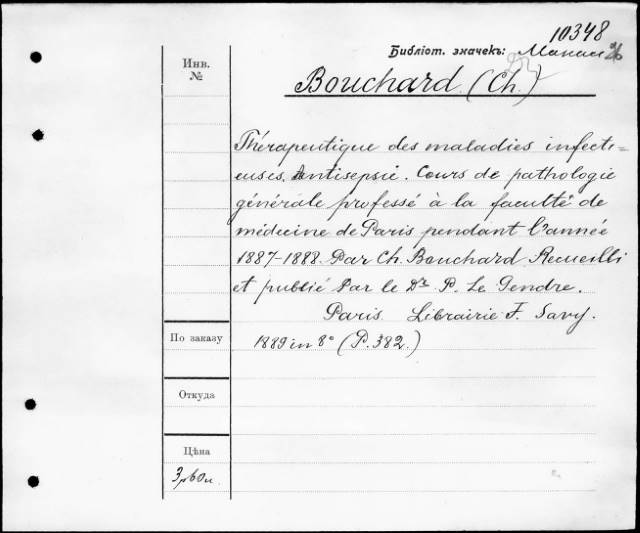 10348
Библіот. значекъ:
Инв.
№
Bouchard (Ch.)
Thérapeutique des maladies infecti-
euses. Antisepsie. Cours de pathologie
générale professé à la faculté de
médecine de Paris pendant l'année
1887-1888. Par Ch. Bouchard. Recueilli
et publié par le Dr. P. Le Gendre.
Paris. Librairie F. Savy.
По заказу
1889 in 8° (P. 382.)
Откуда
Цѣна
3р60к